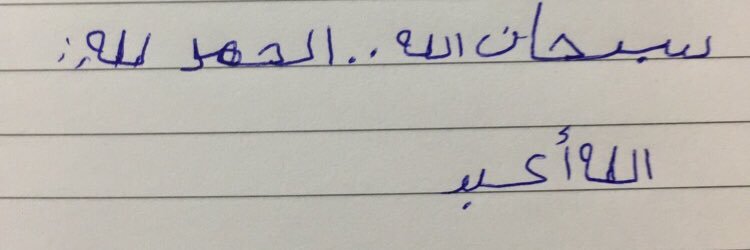 سبحان الله..الحمد لله..
الله أكبر